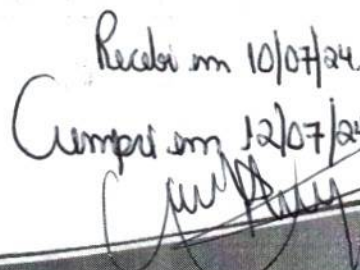 Recebi em 10/07/24
Cumpri em 12/07/24